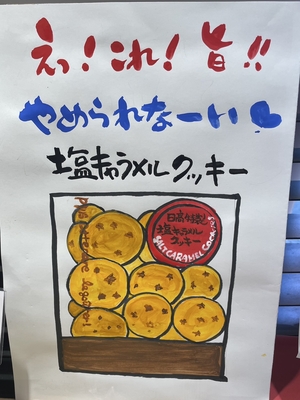 えっ!これ!旨!!
やめられなーい
塩キャラメルクッキー
日高牛製
塩キャラメル
クッキー
SALT CARAMEL COOKIES